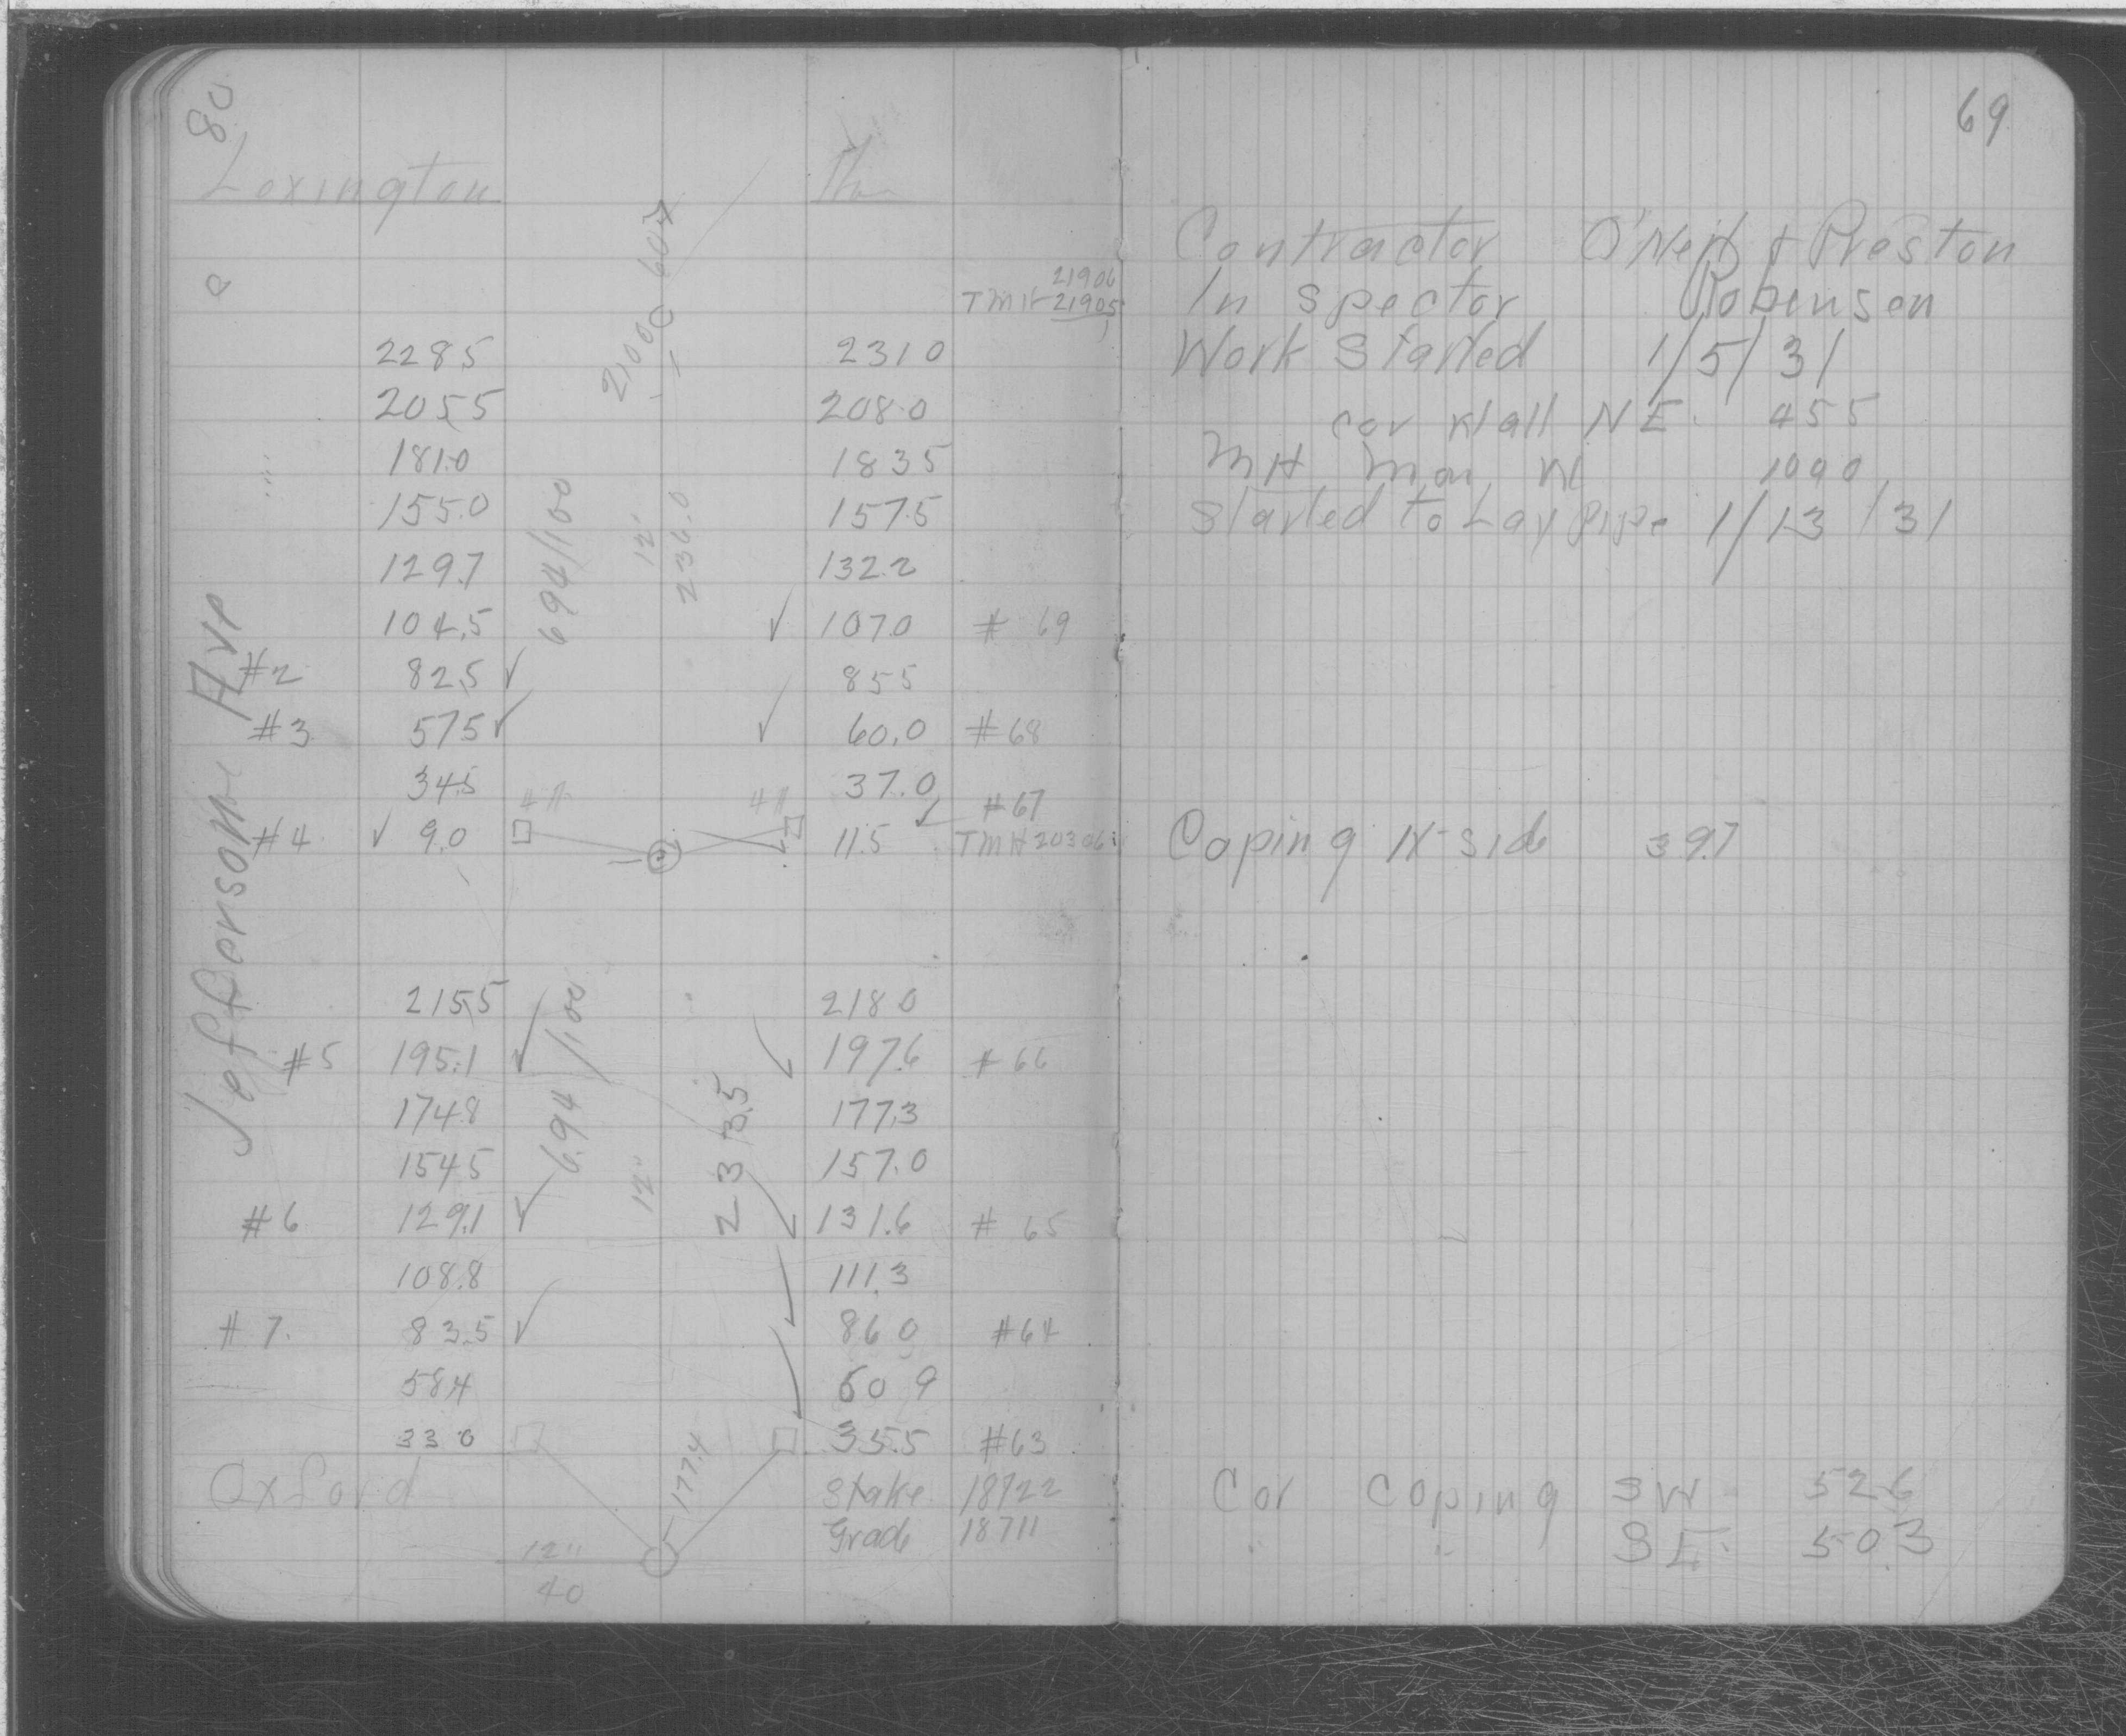 80
Lexington
21906
TMH 21905
2285 2310
2055 2080
181.0 1835
155.0 157.5
129.7 132.2
104.5 ✓ 107.0 # 69
#2 82.5 ✓ 855
#3 575 ✓ ✓ 60.0 #68
34.5 37.0
#67
#4 ✓ 9.0 11.5 TMH 20306
694/100
12"
236.0
Jefferson Ave
2155 2180
#5 195.1 ✓ 197.6 # 66
174.8 177.3
154.5 157.0
#6 129.1 ✓ 131.6 # 65
108.8 111.3
#7. 83.5 ✓ 860 #64
584 609
330 35.5 #63
Oxford Stake 18722
Grade 18711
6.94/100
12"
233.5
177.4
12"
40
69
Contractor O'Neil & Preston
Inspector Robinson
Work Started 1/5/31
cor Wall NE. 455
MH Mon W 1090
Started to Lay Pipe 1/13/31
Coping N-side 397
Cor Coping SW 526
" " SE. 50.3